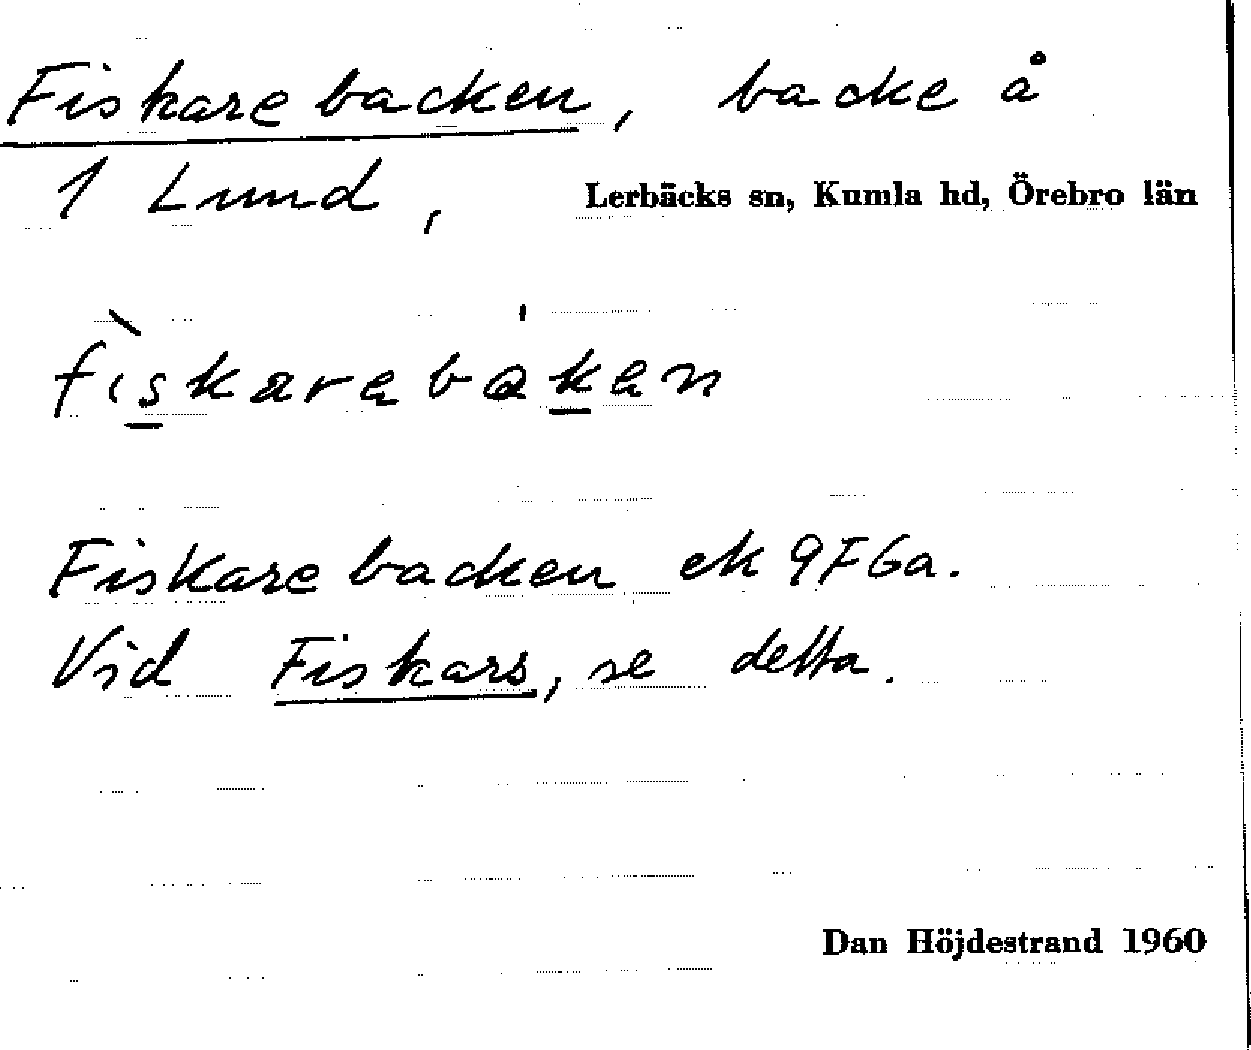 Fiskarebacken, backe å
1 Lund,
Lerbäcks sn, Kumla hd, Örebro län
fìskarebáken
Fiskarebacken ek 9F6a.
Vid Fiskars, se detta.
Dan Höjdestrand 1960